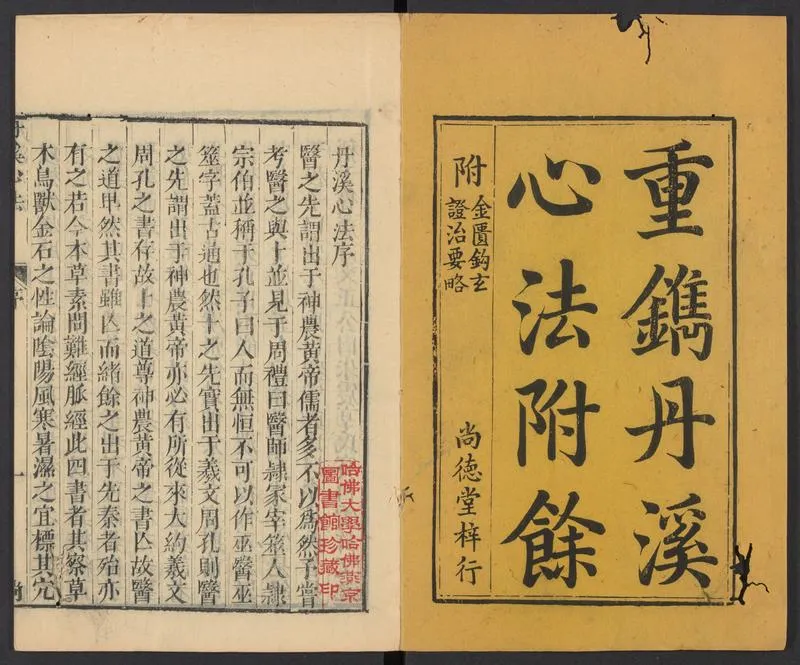 重鐫丹溪
心法附餘
附
金匱鈎玄
證治要略
尚德堂梓行
丹溪心法序
醫之先謂出于神農黃帝儒者多不以爲然予嘗
考醫之與卜並見于周禮曰醫師隷冢宰簭人隷
宗伯並稱于孔子曰人而無恒不可以作巫醫巫
筮字蓋古通也然卜之先實出于羲文周孔則醫
之先謂出于神農黃帝亦必有所從來大約羲文
周孔之書存故卜之道尊神農黃帝之書亾故醫
之道卑然其書雖亾而緒餘之出于先秦者殆亦
有之若今本草素問難經脈經此四書者其察草
木鳥獸金石之性論陰陽風寒暑濕之宜標其穴
丹溪心法
序
一
尚
哈佛大學哈佛燕京
圖書館珍藏印